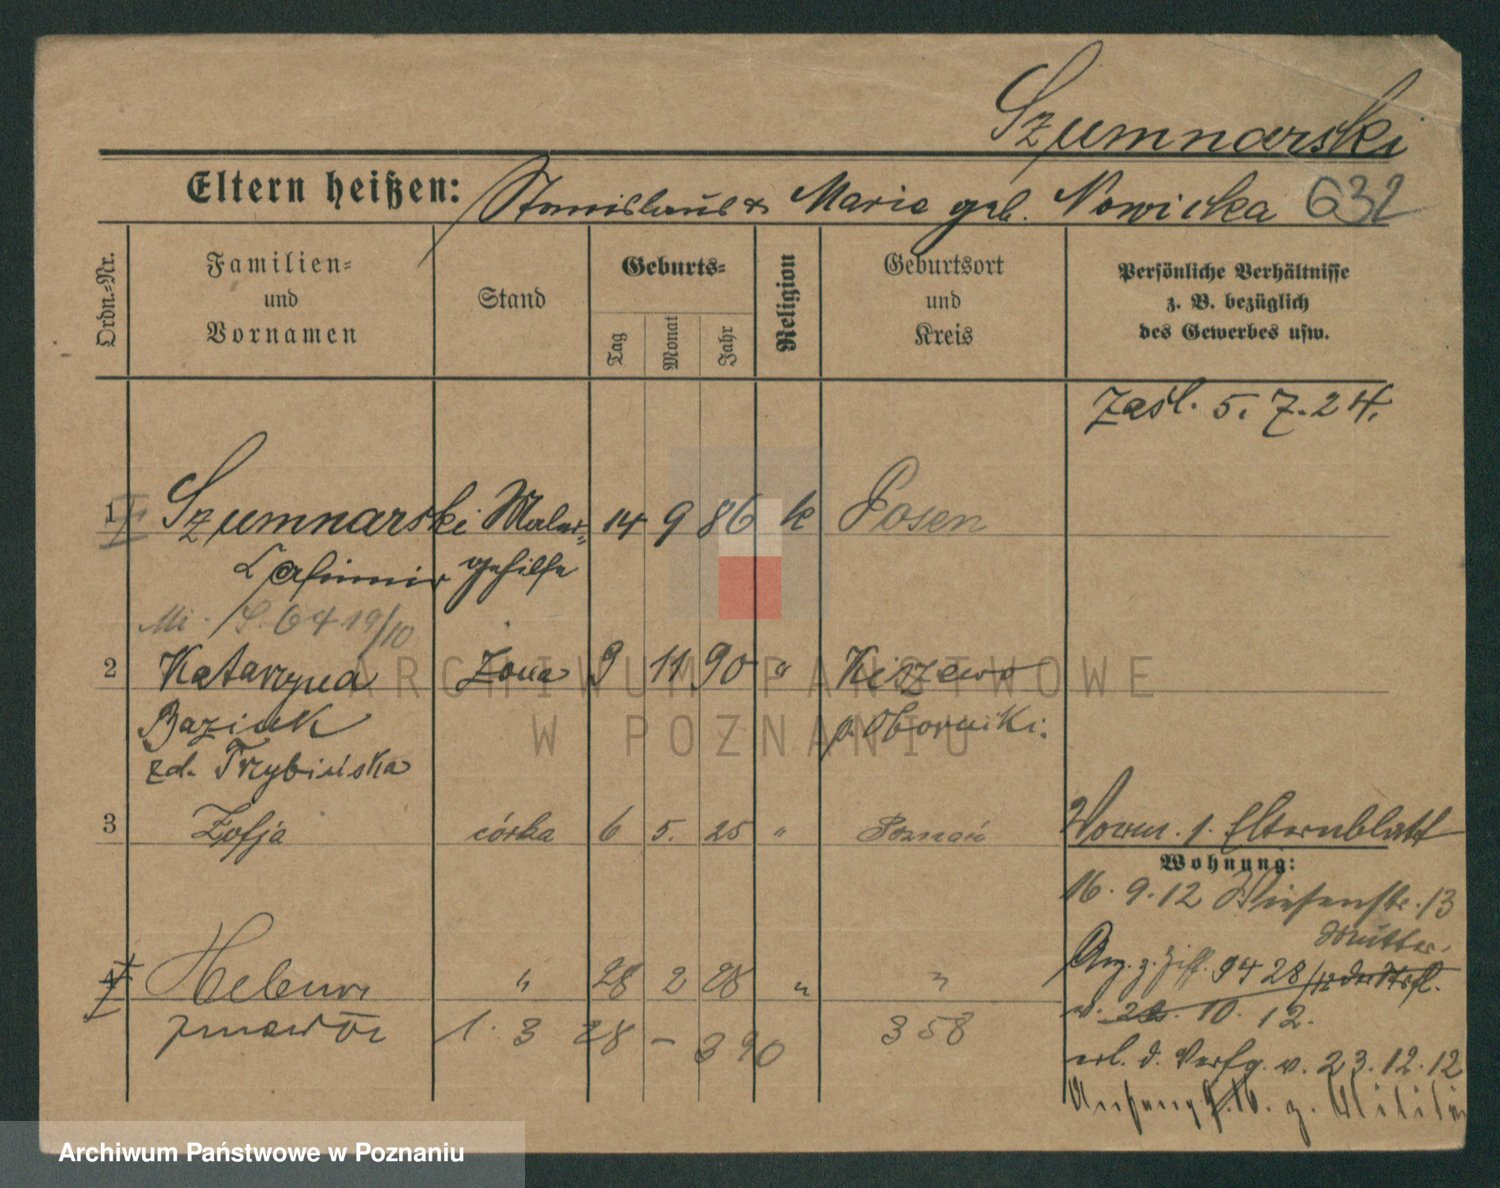 Szumnarski
Eltern heißen: Stanislaus & Maria geb. Nowicka 632
Ordn.-Nr.
Familien- und Vornamen
Stand
Geburts-
Tag
Monat
Jahr
Religion
Geburtsort und Kreis
Persönliche Verhältnisse z. B. bezüglich des Gewerbes usw.
zaśl. 5. 7. 24.
1 Szumnarski Maler- 14 9 86 k Posen
Casimir gehilfe
19/10
2 Katarzyna żona 9 11 90 " Kiszewo
Baziak p. Oborniki.
zd. Trzybińska
3 Zofja córka 6 5. 25 " Poznań
Vorm. s. Elternblatt
Wohnung:
16. 9. 12 Wiesenstr. 13
Mutter
4 Helena " 28 2 28 " "
Anz. z. Ziff. 9428/12
v. 10. 12.
zmarła 1. 3 28 – 390 358
erl. d. Verfg. v. 23. 12. 12
Anfang z. Militär
Archiwum Państwowe w Poznaniu
ARCHIWUM PAŃSTWOWE
W POZNANIU